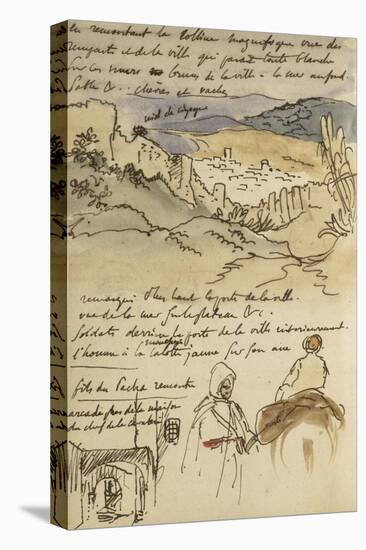 en remontant la colline magnifique vue des
remparts et de la ville qui parait toute blanche
Sur les murs bruns de la ville - la mer au fond.
Sable &c. chèvres et vaches
nid de cigogne
remarqué plus haut la porte de la ville.
vue de la mer sur le plateau &c.
Soldats derrière la porte de la ville intérieurement.
l'homme à la calotte jaune sur son âne
fils du Pacha rencontré
arcade près de la maison
du chef de la